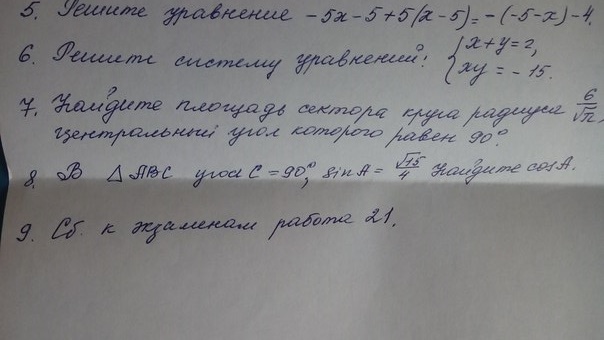 5. Решите уравнение -5x-5+5(x-5)=-(-5-x)-4.
6. Решить систему уравнений: { x+y=2,
xy=-15.
7. Найдите площадь сектора круга радиуса 6/√π,
центральный угол которого равен 90°.
8. В △ABC угол C=90°, sinA=√15/4 Найдите cosA.
9. Сб. к экзаменам работа 21.